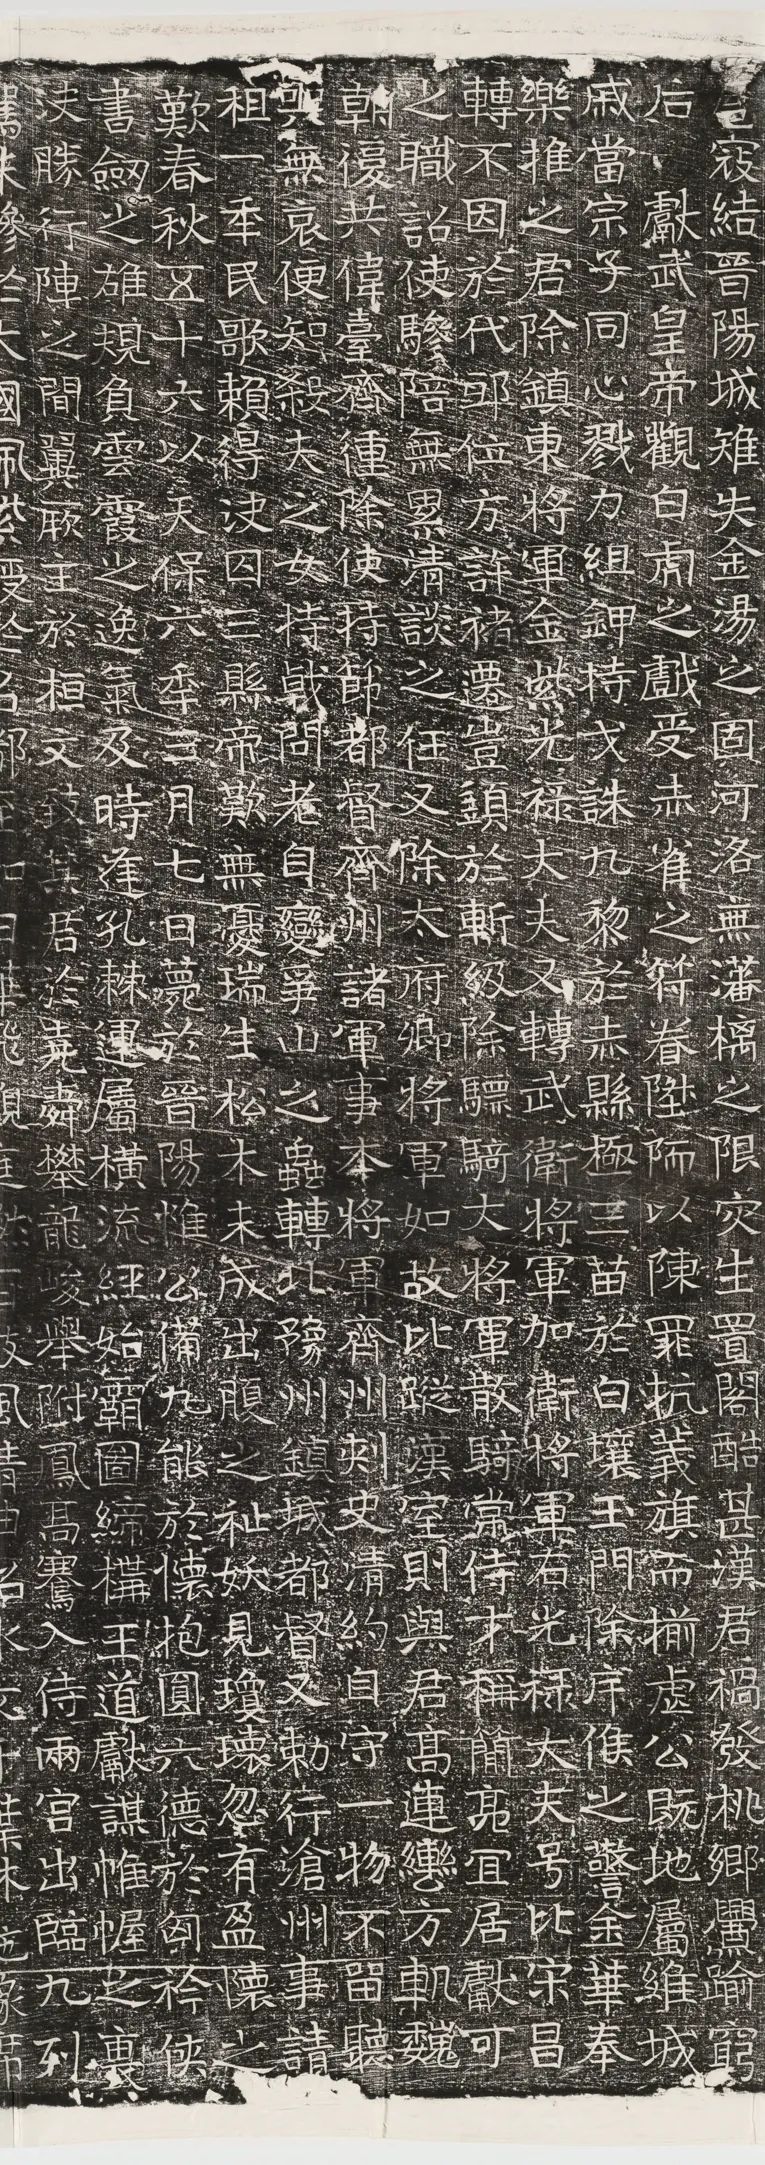 寇結晉陽城雉失金湯之固河洛無藩檎之限灾生置閣酷甚漢君禍發桃鄉釁踰窮
后獻武皇帝觀白虎之戲受赤雀之符眷陞陑以陳罪抗義旗而揃虐公既地屬維城
戚當宗子同心戮力組鉀持戈誅九黎於赤縣極三苗於白壤王門除序俟之警金華奉
樂推之君除鎮東將軍金紫光祿大夫又轉武衛將軍加衛將軍右光祿大夫号比宋昌
轉不因於代邸位方許褚遷豈頿於斬級除驃騎大將軍散騎常侍才稱簡亮宜居獻可
之職詔使驂陪無累清談之任又除太府卿將軍如故比蹤漢室則與君高連轡方軌魏
朝復共偉臺齊徸除使持節都督齊州諸軍事本將軍齊州刺史清約自守一物不留聽
無哀便知殺夫之女恃戟問老自變爭山之蟲轉北豫州鎮城都督又勅行滄州事請
租一年民歌賴得決囚三縣帝歎無憂瑞生松木未成出腹之祉妖見瓊瓌忽有盈懷之
歎春秋五十六以天保六年三月七日薨於晉陽惟公備九能於懷抱圓六德於匈衿俠
書劒之雄規負雲霞之逸氣及時逢孔棘運屬橫流經始霸圖締構王道獻謀帷幄之裏
決勝行陣之間翼厥主於桓文致其君於堯舜攀龍峻舉附鳳高騫入侍兩宮出臨九列